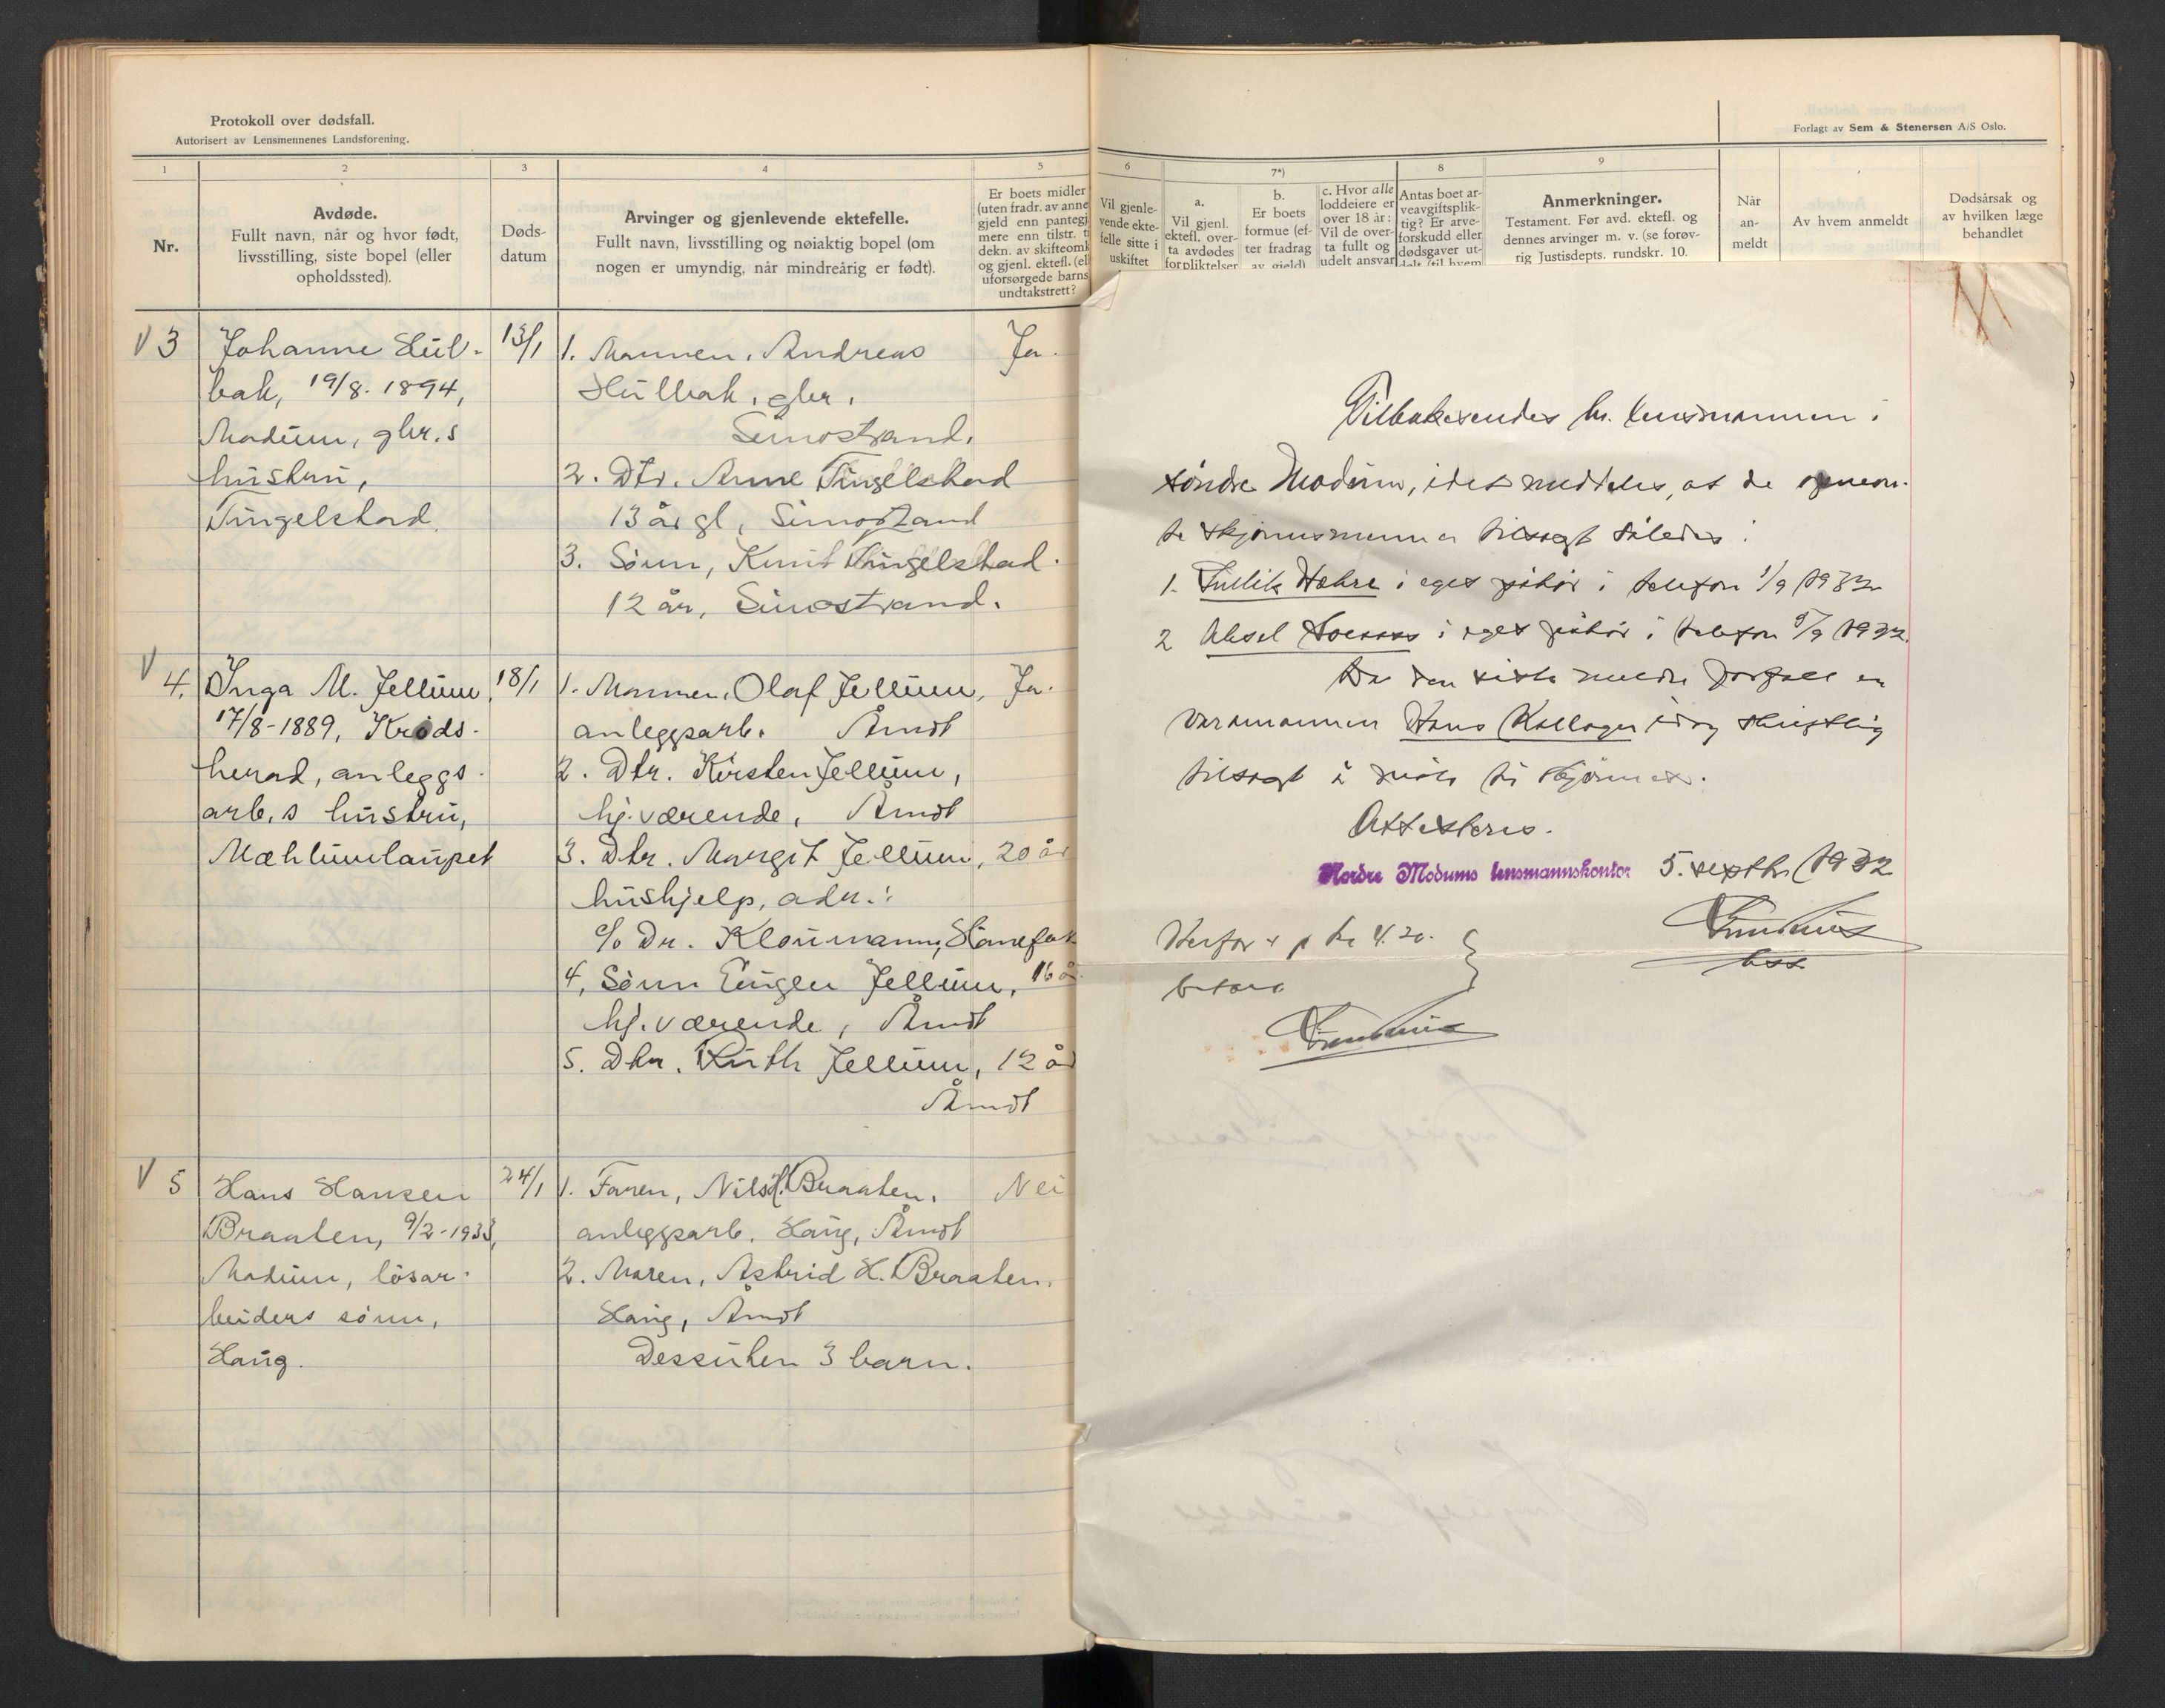 Protokoll over dødsfall.
Autorisert av Lensmennenes Landsforening.
1
2
3
4
5
Nr.
Avdøde.
Fullt navn, når og hvor født,
livsstilling, siste bopel (eller
opholdssted).
Døds-
datum
Arvinger og gjenlevende ektefelle.
Fullt navn, livsstilling og nøiaktig bopel (om
nogen er umyndig, når mindreårig er født).
Er boets midler
(uten fradr. av anne
gjeld enn pantegj
mere enn tilstr. t
dekn. av skifteomk
og gjenl. ektefl. (el
uforsørgede barns
undtakstrett?
V 3
Johanne Hul-
bak, 19/8. 1894,
Modum, gbr.s
hustru,
Tingelstad.
13/1
1. Mannen, Andreas
Hulbak, gbr,
Simostrand.
2. Dtr. Anne Tingelstad
13 år gl, Simostrand
3. Sønn, Knut Tingelstad.
12 år, Simostrand.
Ja.
V 4.
Inga M. Jellum,
17/8-1889, Krøds-
herad, anleggs-
arb.s hustru,
Mæhlumlaupet
18/1
1. Mannen, Olaf Jellum,
anleggsarb. Åmot
2. Dtr. Kirsten Jellum,
hj.værende, Åmot
3. Dtr. Margit Jellum, 20 år
hushjelp, adr.:
c/o Dr. Kloumann, Hønefos
4, Sønn Eugen Jellum, 16 å
hj.værende, Åmot
5. Dtr. Ruth Jellum, 12 år
Åmot
Ja.
V 5
Hans Hansen
Braaten, 9/2-1933,
Modum, løsar-
beiders sønn,
Haug.
24/1
1. Faren, Nils H. Braaten,
anleggsarb. Haug, Åmot
2. Moren, Astrid H. Braaten.
Haug, Åmot
Dessuten 3 barn.
Nei
Forlagt av Sem & Stenersen A/S Oslo.
6
7*)
8
9
Vil gjenle-
vende ekte-
felle sitte i
uskiftet
a.
Vil gjenl.
ektefl. over-
ta avdødes
forpliktelser
b.
Er boets
formue (ef-
ter fradrag
av gjeld)
c. Hvor alle
loddeiere er
over 18 år:
Vil de over-
ta fullt og
udelt ansvar
Antas boet ar-
veavgiftsplik-
tig? Er arve-
forskudd eller
dødsgaver ut-
delt (til hvem
Anmerkninger.
Testament. Før avd. ektefl. og
dennes arvinger m. v. (se forøv-
rig Justisdepts. rundskr. 10.
Når
an-
meldt
Av hvem anmeldt
Dødsårsak og
av hvilken læge
behandlet
Tilbakesendes hr. lensmannen i
søndre Modum, idet meddeles, at de opnevn-
te skjønnsmenn er tilsagt således:
1. Gullik Hæhre i eget påhør i telefon 1/9 1932
2 Aksel i eget påhør i telefon 5/9 1932.
Da den siste meldte forfall er
varamannen Hans Kallager idag skriftlig
tilsagt å møte til skjønnet.
Attesteres.
Nordre Modums lensmannskontor 5. septbr 1932
Herfor er p kr 4.20.
betalt